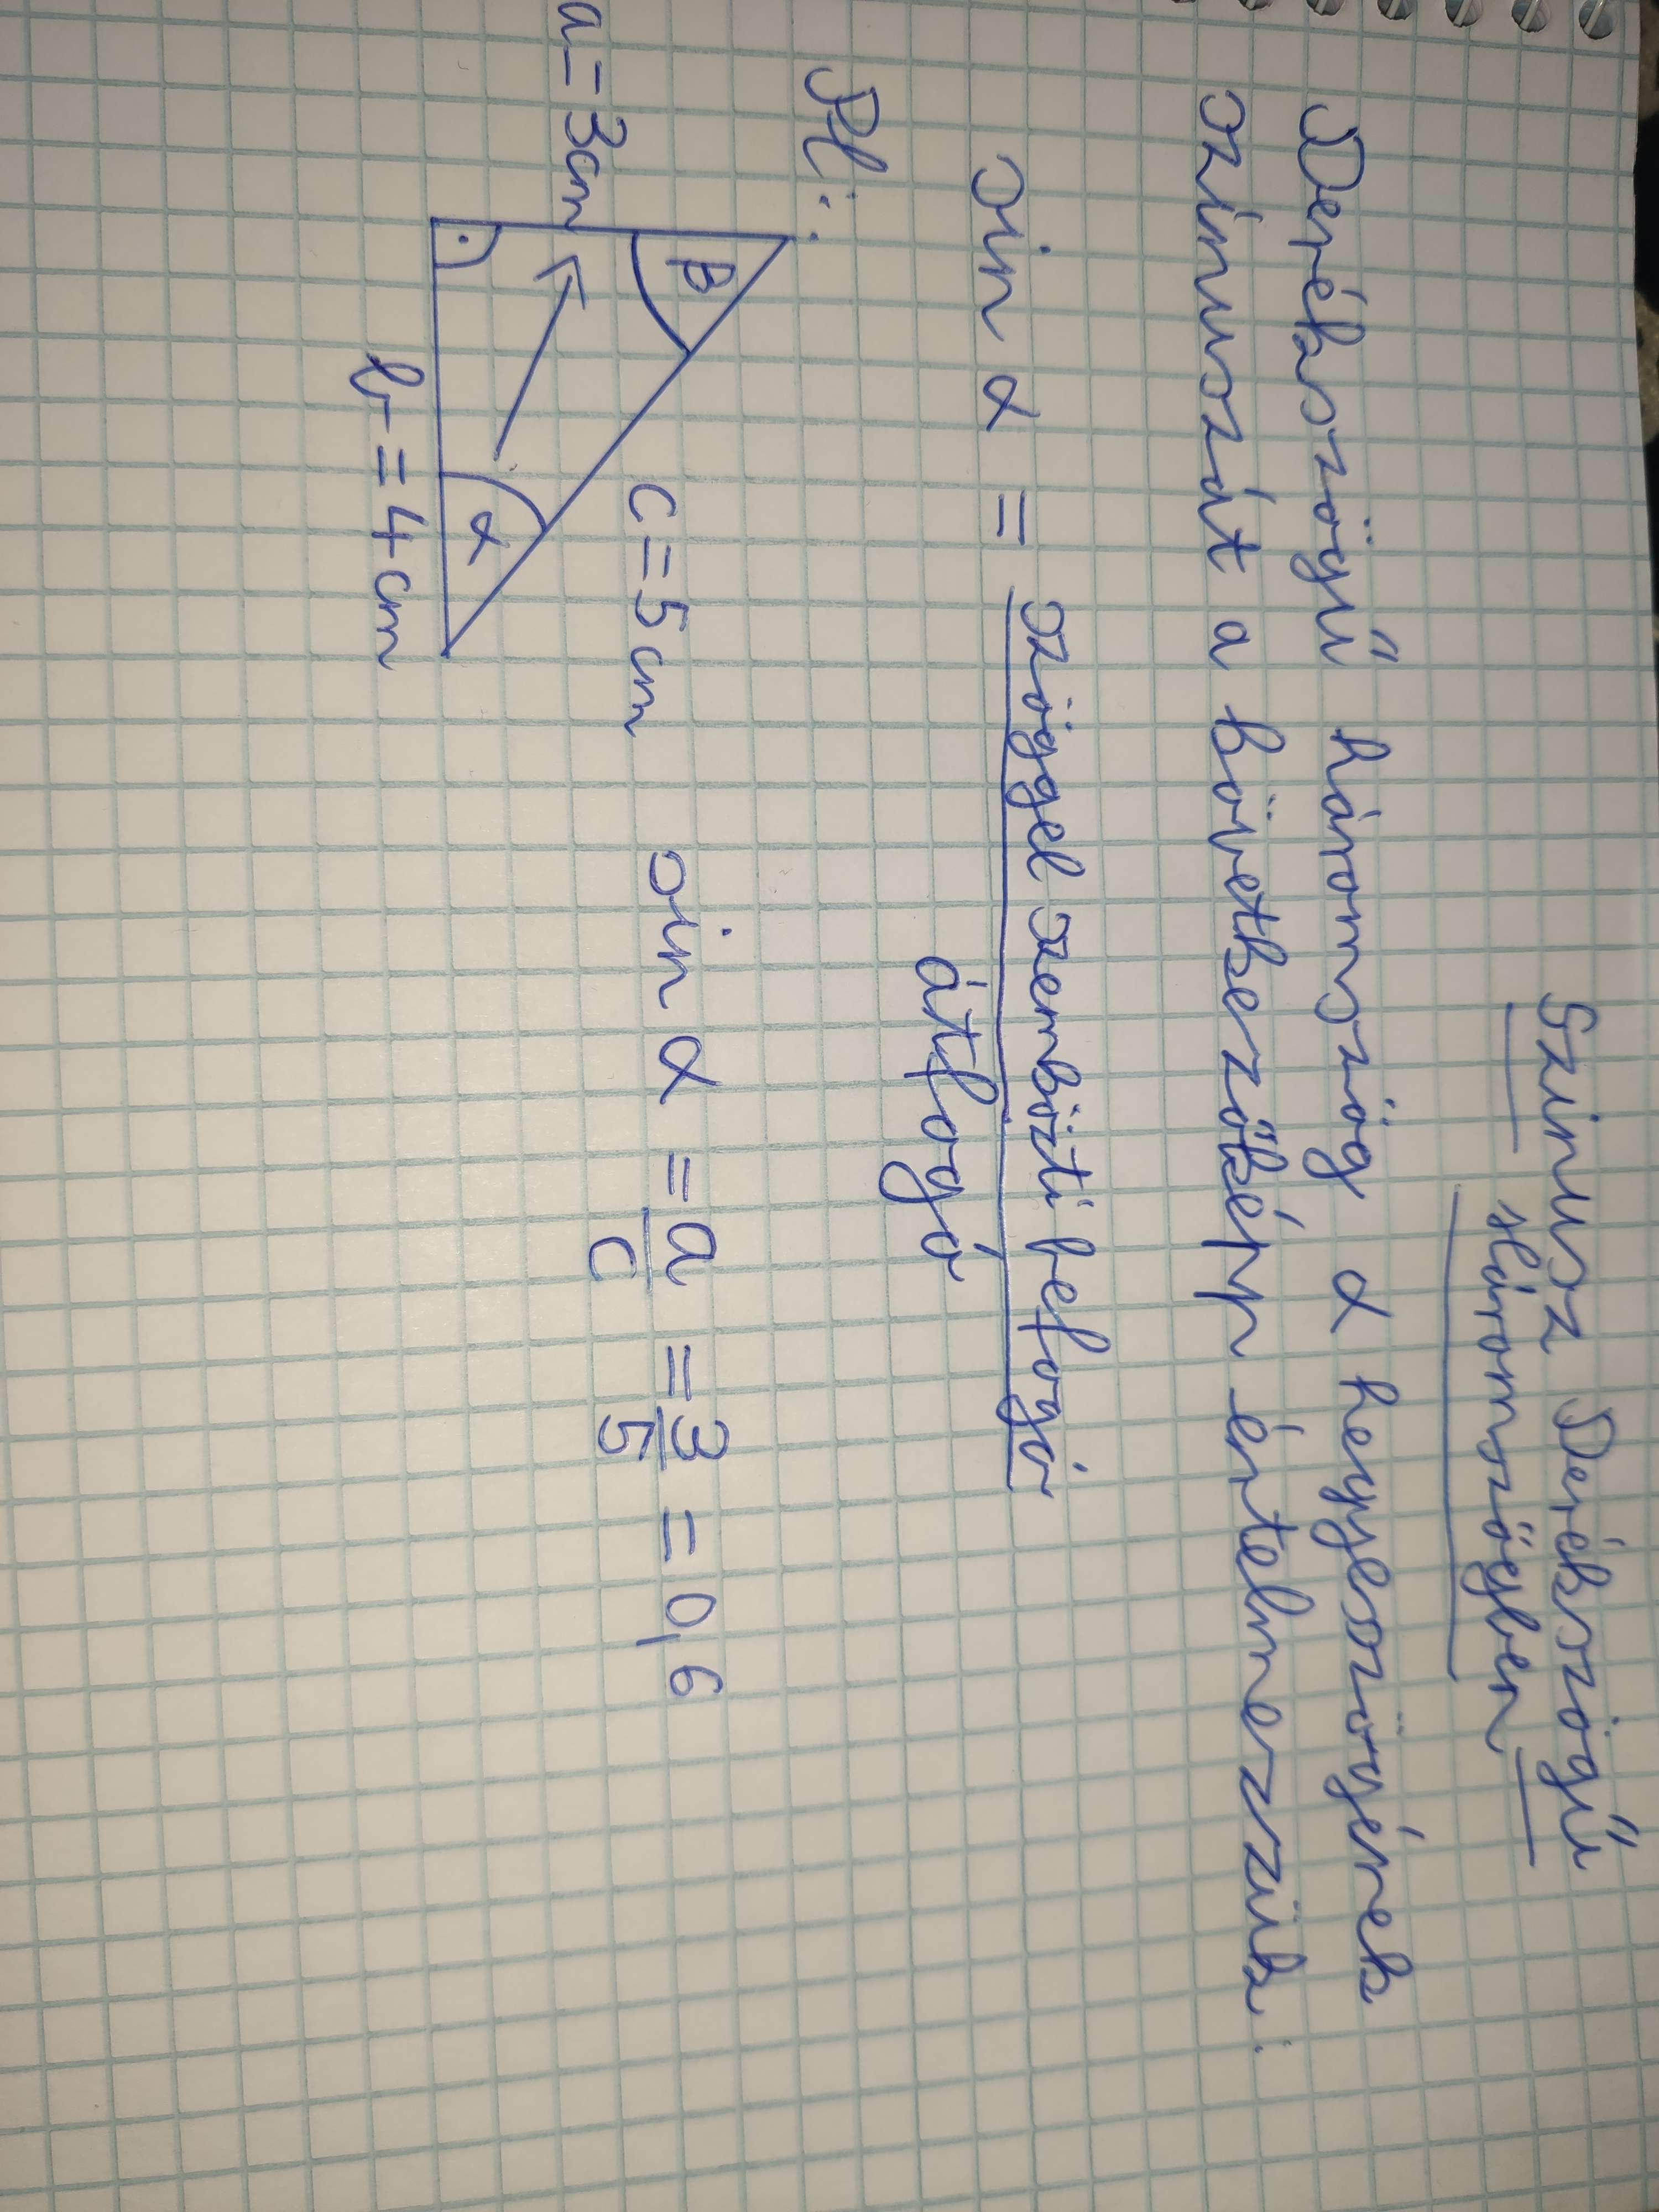 Szinusz Derékszögű
Háromszögben
Derékszögű háromszög α hegyesszögének
szinuszát a következőképp értelmezzük:
sin α = szöggel szembözti befogó
átfogó
Pl:
a=3cm
β
c=5cm
α
b=4cm
sin α = a/c = 3/5 = 0,6